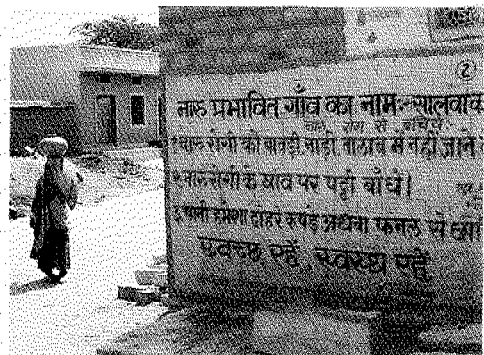 ②
नारु प्रभावित गाँव का नामः-सालवाक
नारु रोग से बचिये
१ नारु रोगी को बावड़ी नाड़ी तालाब में नही जाने
२ नारु रोगी के घाव पर पट्टी बाँधे।
३ पानी हमेशा दोहरे कपड़े अथवा फनल से छा
स्वच्छ रहें, स्वस्थ रहें